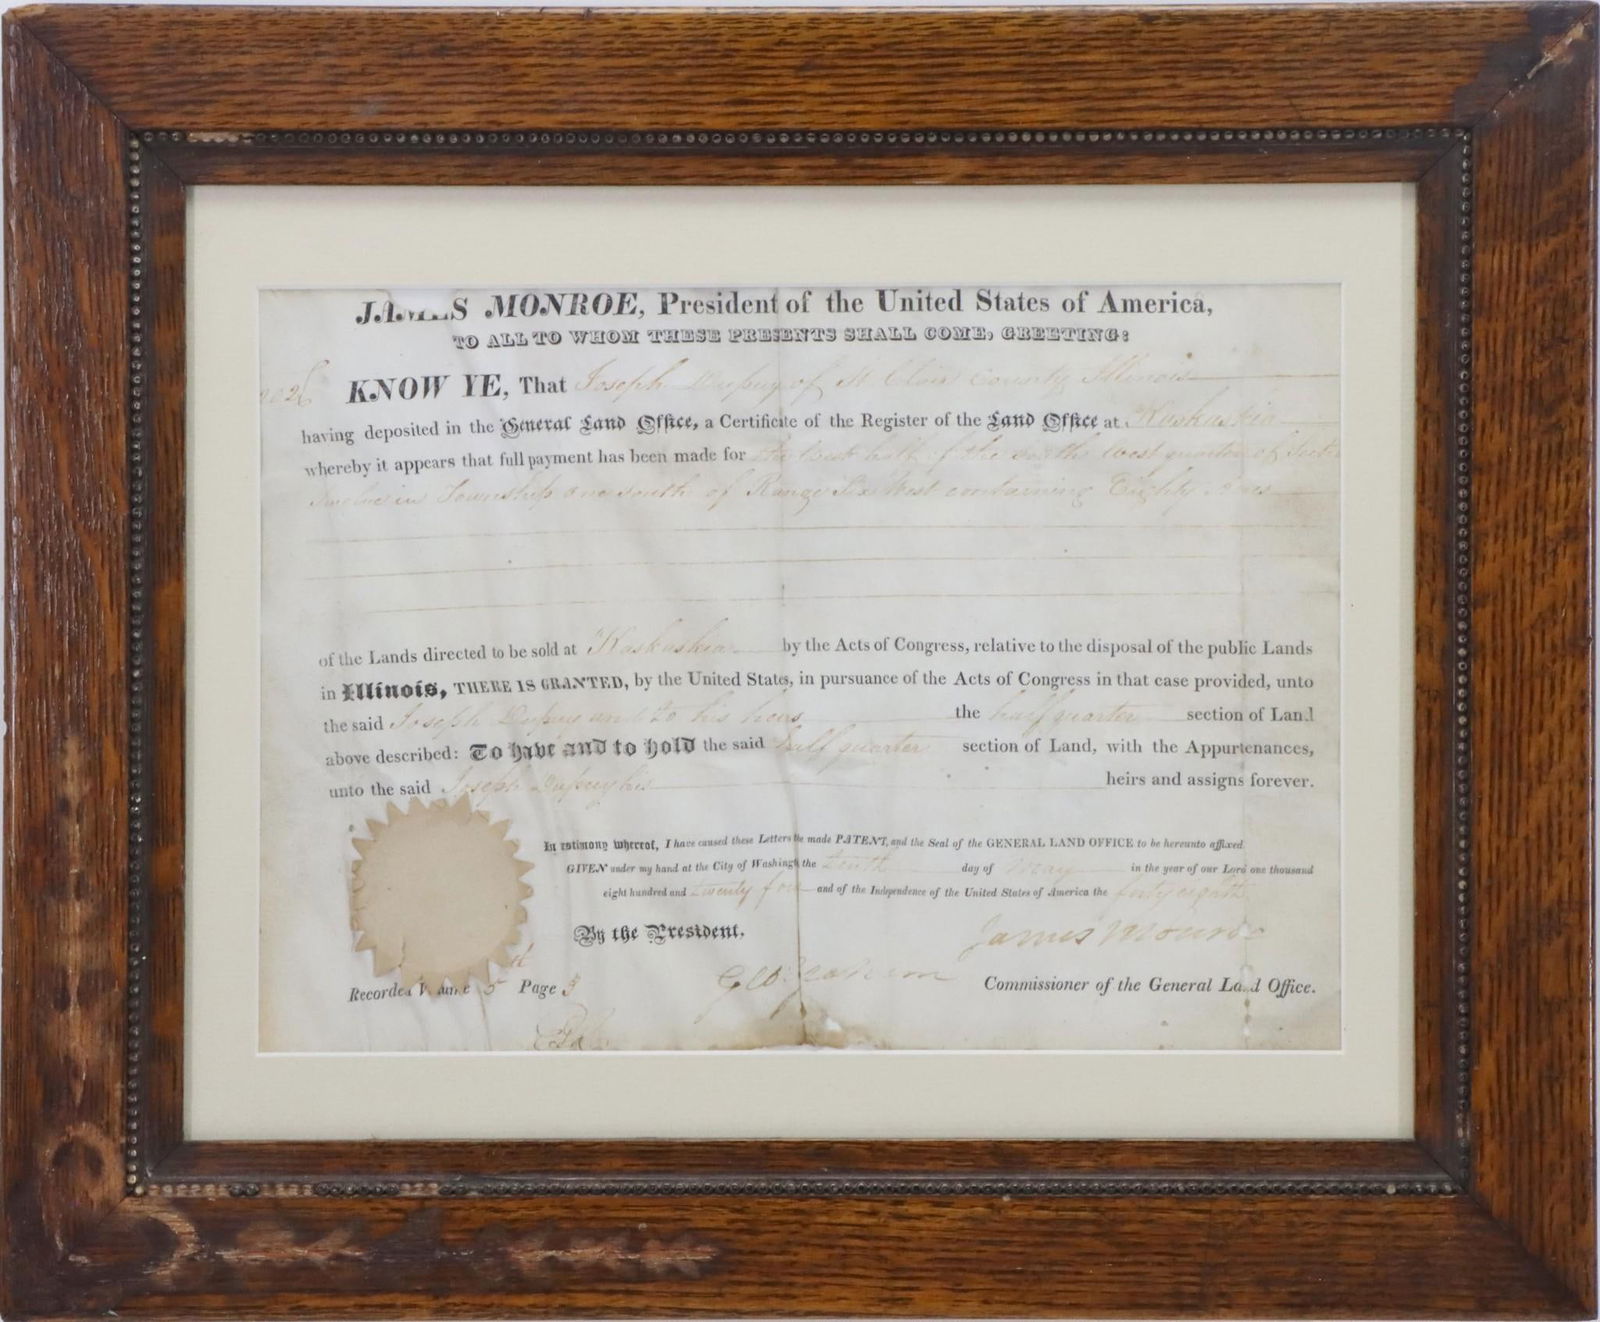 JAMES MONROE, President of the United States of America,
TO ALL TO WHOM THESE PRESENTS SHALL COME, GREETING:
KNOW YE, That Joseph Dupuy of St. Clair County Illinois
having deposited in the General Land Office, a Certificate of the Register of the Land Office at Kaskaskia
whereby it appears that full payment has been made for the West half of the South West quarter of Section
Twelve in Township one South of Range Six West containing Eighty Acres
of the Lands directed to be sold at Kaskaskia by the Acts of Congress, relative to the disposal of the public Lands
in Illinois, THERE IS GRANTED, by the United States, in pursuance of the Acts of Congress in that case provided, unto
the said Joseph Dupuy and to his heirs the half quarter section of Land
above described: To have and to hold the said half quarter section of Land, with the Appurtenances,
unto the said Joseph Dupuy his heirs and assigns forever.
In testimony whereof, I have caused these Letters to be made PATENT, and the Seal of the GENERAL LAND OFFICE to be hereunto affixed.
GIVEN under my hand at the City of Washington the tenth day of May in the year of our Lord one thousand
eight hundred and twenty four and of the Independence of the United States of America the forty eighth
By the President. James Monroe
Geo: Graham Commissioner of the General Land Office.
Recorded Volume 5 Page 3